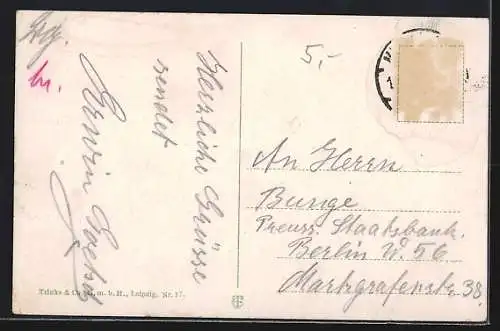 5,-
Herzliche Grüsse
sendet
Erwin
An Herrn
Bunge
Preuss. Staatsbank.
Berlin W. 56
Markgrafenstr. 38.
Trinks & Co., G. m. b. H., Leipzig. Nr. 17.